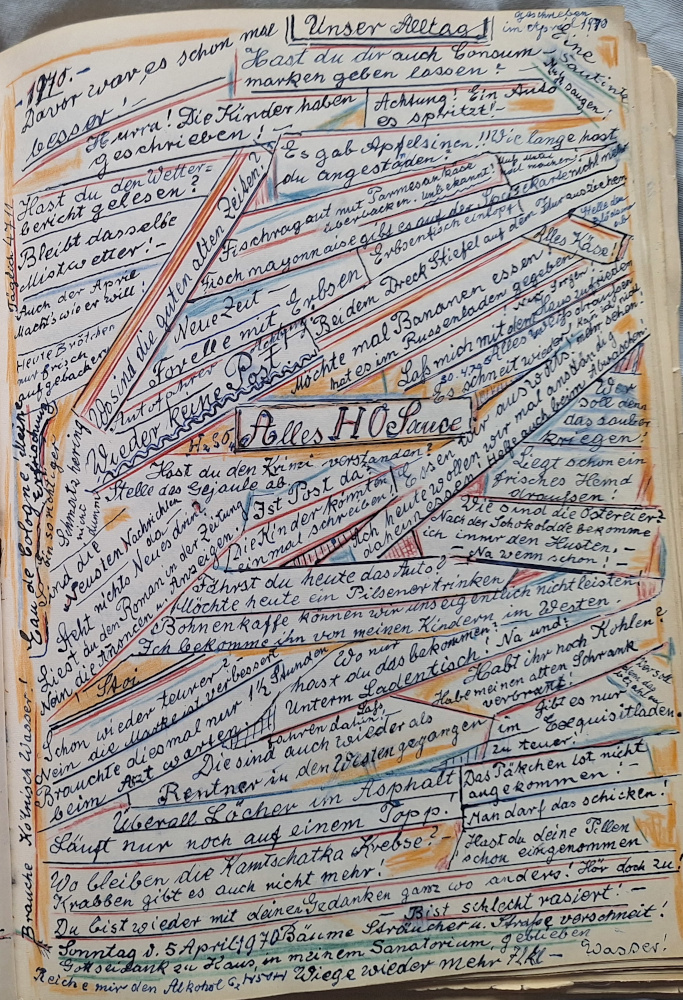 Unser Alltag
geschrieben
im April 1970
- 1970.-
Davor war es schon mal
besser! -
Hast du dir auch Consum
marken geben lassen?
Eine
Hurra! Die Kinder haben
geschrieben! -
Achtung! Ein Auto
es spritzt! -
Es gab Apfelsinen!!! Wie lange hast
du angestanden?
Hast du den Wetter-
bericht gelesen? -
Bleibt dasselbe
Mistwetter! -
Auch der April
Macht's wie er will!
Heute Brötchen
nur frisch
aufgebacken
Täglich 47 11
Wo sind die guten alten Zeiten?
Fischragout mit Parmesankäse
überbacken. Unbekannt!
Fischmayonnaise gibt es auf der Speisekarte nicht mehr
Neue Zeit -
Erbsenfisch eintopf!
Forelle mit Erbsen
Bei dem Dreck Stiefel auf dem Flur ausziehen
Alles Käse!
Achtung!
Autofahrer
Möchte mal Bananen essen
hat es im Russenladen gegeben
Wieder keine Post
Laß mich mit dem zufrieden
Es schneit wieder
Alles HO Sauce
H₂SO₄
Hast du den Krimi verstanden?
Stelle das Gejaule ab
Ist Post da?
Die Kinder könnten
einmal schreiben!
Essen wir auswärts
Ich heute wollen wir mal anständig
daheim essen!
Helfe auch beim Abwaschen!
Wer
soll denn
das sauber
kriegen!
Liegt schon ein
frisches Hemd
draußen!
Wie sind die Ostereier?
Nach der Schokolade bekomme
ich immer den Husten. -
- Na wenn schon! -
Sind die
Neusten Nachrichten
Steht nichts Neues drin!
Liest du den Roman in der Zeitung
Nein die Annoncen u. Anzeigen
Fährst du heute das Auto? -
Möchte heute ein Pilsener trinken
Bohnenkaffe können wir uns eigentlich nicht leisten!
Ich bekomme ihn von meinen Kindern im Westen.
Stoi
Schon wieder teurer? -
Nein die Marke ist verbessert
Brauchte diesmal nur 1½ Stunden
beim Arzt warten.
Wo nur
hast du das bekommen?
Unterm Ladentisch! Na und!
Habt ihr noch Kohlen?
Habe meinen alten Schrank
verbrannt!
Laß,
fahren dahin!
Die sind auch wieder als
Rentner in den Westen gegangen
Gibt es nur
im Exquisitladen.
zu teuer!
Überall Löcher im Asphalt
Läuft nur noch auf einem Topp.
Das Päkchen ist nicht
angekommen! -
Man darf das schicken!
Wo bleiben die Kamtschatka Krebse?
Krabben gibt es auch nicht mehr!
Hast du deine Pillen
schon eingenommen
Du bist wieder mit deinen Gedanken ganz wo anders! Hör doch zu!
Bist schlecht rasiert! -
Sonntag d. 5 April 1970 Bäume Sträucher u. Straße verschneit!
Gottseidank zu Haus, in meinem Sanatorium, geblieben
Reiche mir den Alkohol C₂H5OH Wiege wieder mehr
Wasser!
Brauche Kölnisch Wasser! Eau de Cologne